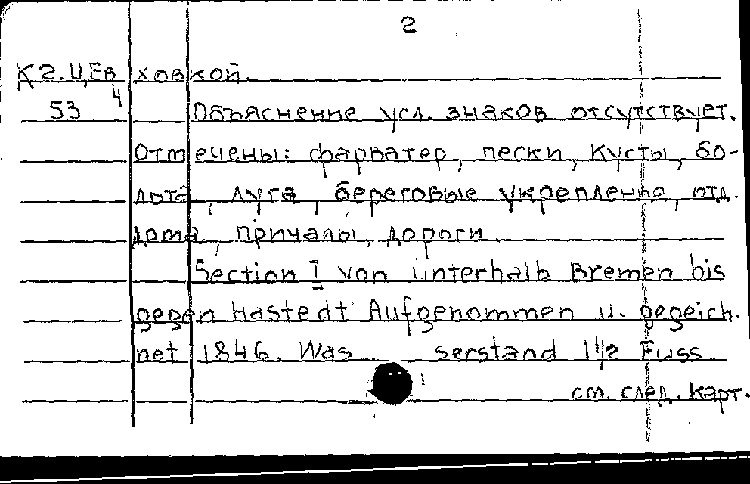 2
К2.Ц,Ев ховкой.
53 4 Объяснение усл. знаков отсутствует.
Отмечены: фарватер, пески, кусты, бо-
лота, луга, береговые укрепления, отд.
дома, причалы, дороги
Section I von unterhalb Bremen bis
gegen Hastedt Aufgenommen u. gezeich.
net 1846. Was serstand 1 1/2 Fuss
см. след. карт.